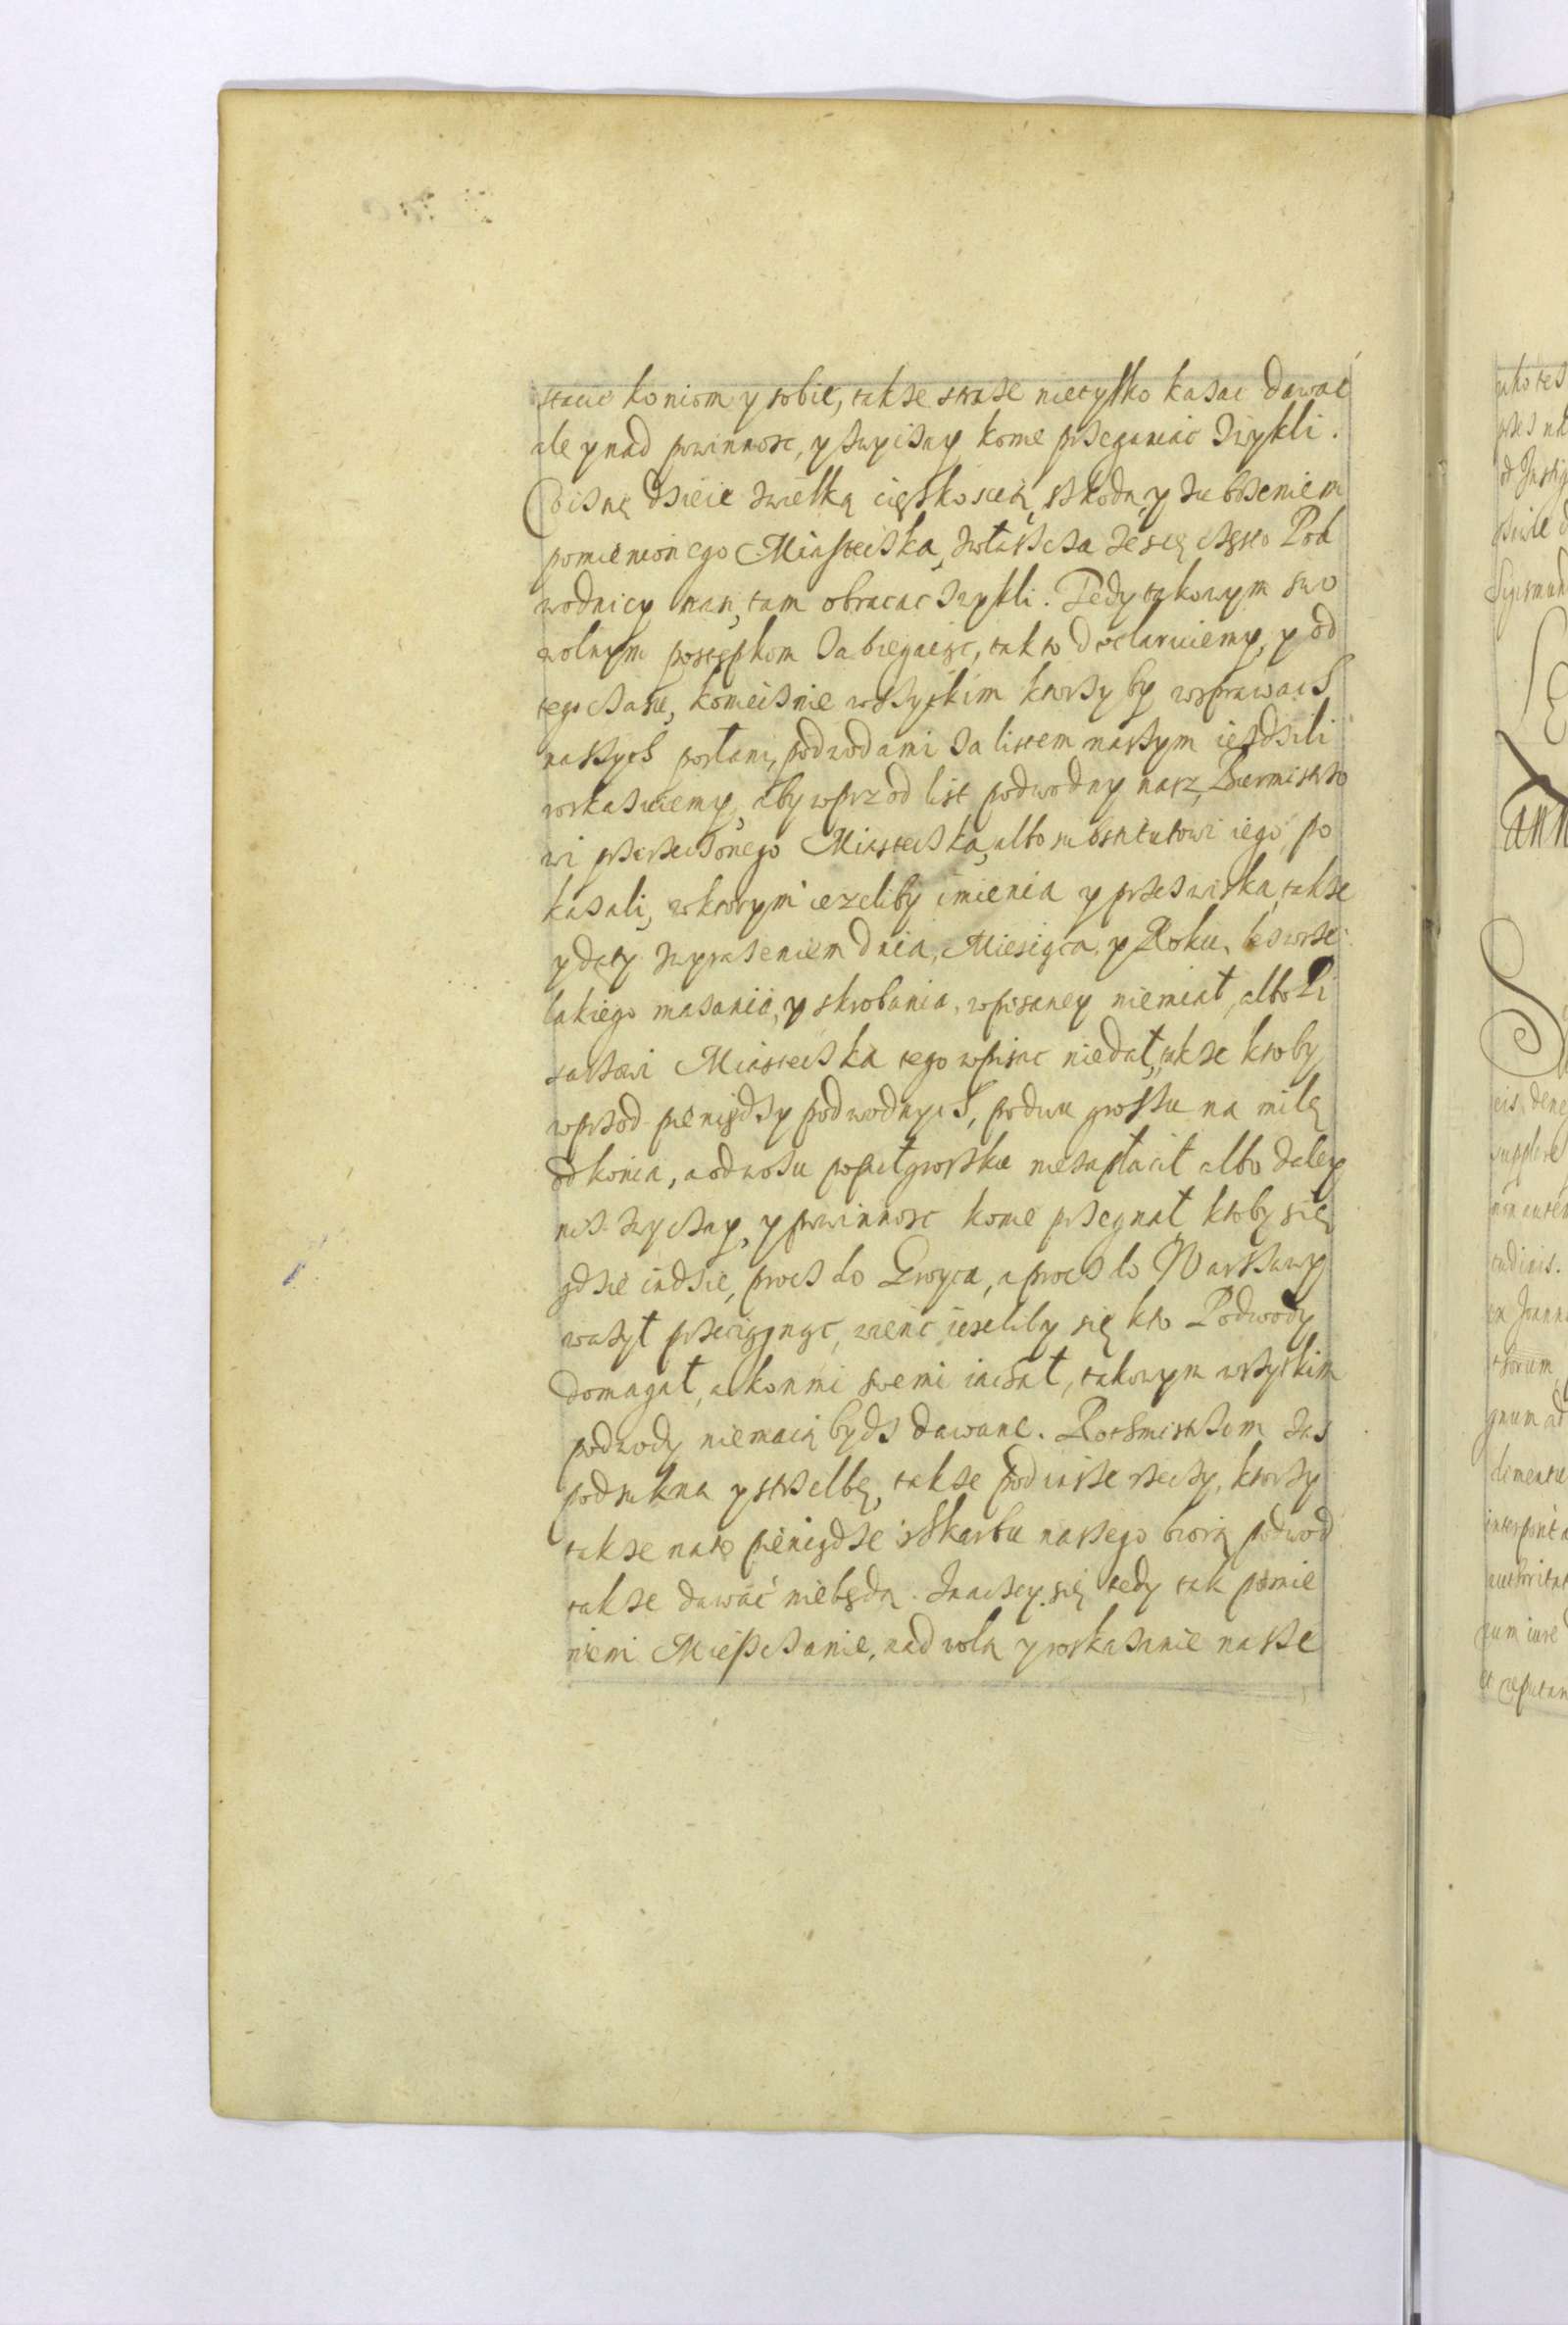 stacie koniom y sobie, takze straze nietylko kazac dawac
ale y nad powinnosc, y zwyczay konie przeganiac zwykli.
Co iz się dzieie z wielką cięszkoscią, szkodą, y zubozeniem
pomienionego Miasteczka, zwłaszcza ze się często Pod
wodnicy nan, tam obracac zwykli. Tedy takowym swo
wolnym postępkom zabiegaiąc, tak to declaruiemy, y od
tego czasu, koniecznie wszytkim ktorzy by w sprawach
naszych posłani, podwodami za listem naszym iezdzili
roskazuiemy, aby wprzod list podwodny nasz, Burmistrzo
wi przerzeczonego Miasteczka, albo substitutowi iego, po
kazali, w ktorym iezeliby imienia y przezwiska, takze
y daty z wyrazeniem dnia, Miesiąca, y Roku, bez wsze
lakiego mazania, y skrobania, wpisaney niemiał, albo Pi
sarzowi Miasteczka tego wpisac niedał, takze ktoby
wprzod pieniędzy podwodnych, po dwu groszu na milę
od konia, a od wozu po puł groszku niezapłacił albo daley
niz zwyczay, y powinnosc konie przegnał ktoby się
gdzie indzie, procz do Groyca, a procz do Warszawy
wazył przeciągnąc, wienc iezeliby się kto Podwody
domagał, a konmi swemi iachał, takowym wszytkim
podwody niemaią bydz dawane. Rothmistrzom zas
pod sukna y strzelbę, takze pod insze rzeczy, ktorzy
takze na to pieniądze z Skarbu naszego biorą podwod
takze dawać niebędą. Inaczey się tedy tak pomie
nieni Mieszczanie, nad wolą y roskazanie nasze